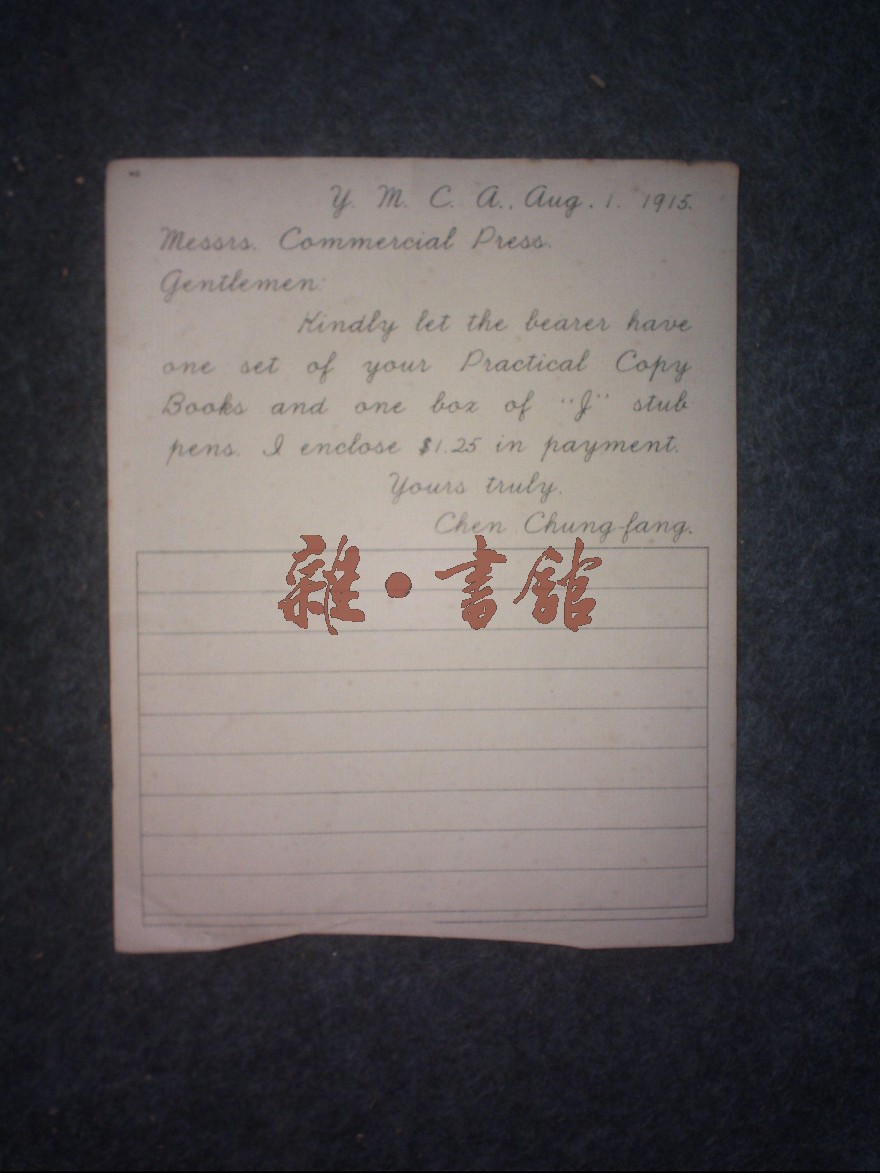 Y. M. C. A., Aug. 1. 1915.
Messrs. Commercial Press.
Gentlemen:
Kindly let the bearer have
one set of your Practical Copy
Books and one box of "J" stub
pens. I enclose $1.25 in payment.
Yours truly.
Chen Chung-fang.
雜·書館